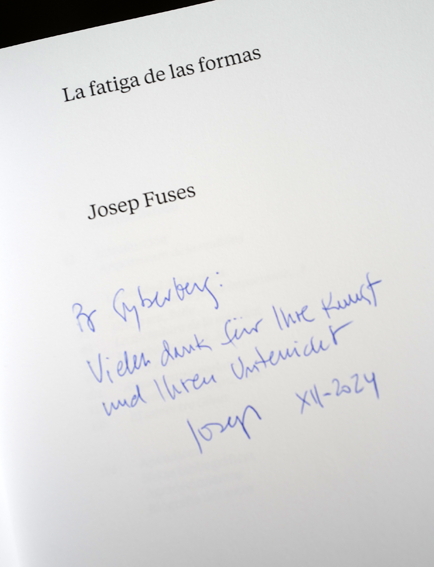 La fatiga de las formas
Josep Fuses
Cyberberg:
Vielen dank für Ihre Kunst
und Ihren Unterricht
Josep XII-2024